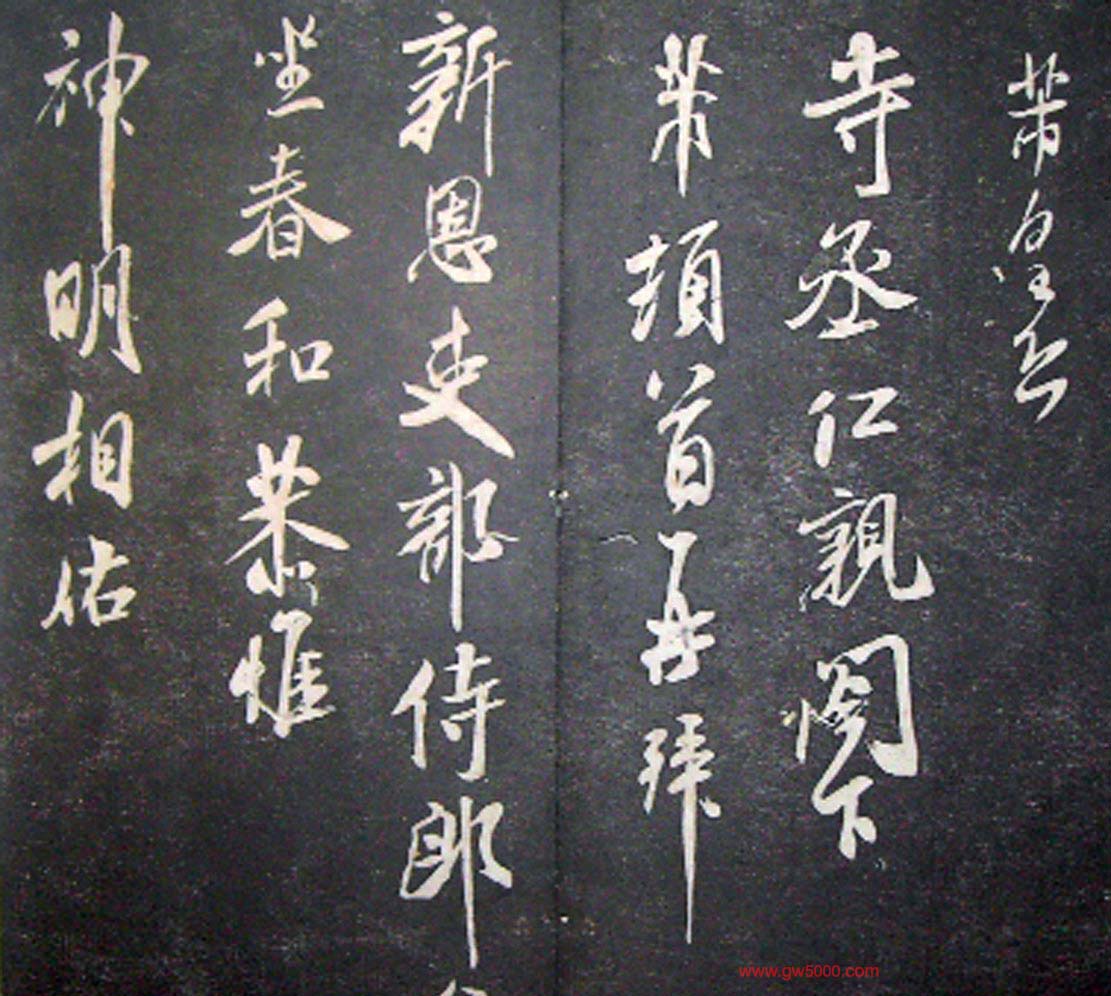 芾皇恐
寺丞仁親閣下
芾頓首再拜
新恩吏部侍郎
春和恭惟
神明相佑
www.gw5000.com